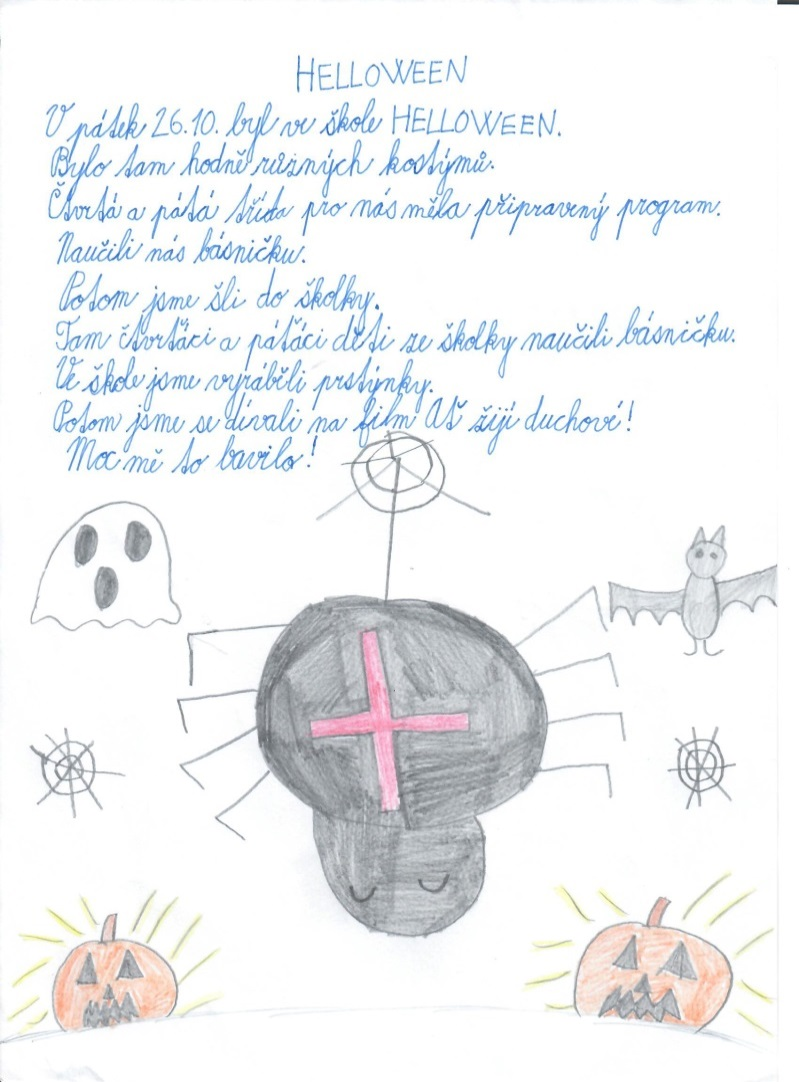 HELLOWEEN
V pátek 26.10. byl ve škole HELLOWEEN.
Bylo tam hodně různých kostýmů.
Čtvrtá a pátá třída pro nás měla připravený program.
Naučili nás básničku.
Potom jsme šli do školky.
Tam čtvrťáci a páťáci děti ze školky naučili básničku.
Ve škole jsme vyráběli prstýnky.
Potom jsme se dívali na film Ať žijí duchové!
Moc mě to bavilo!